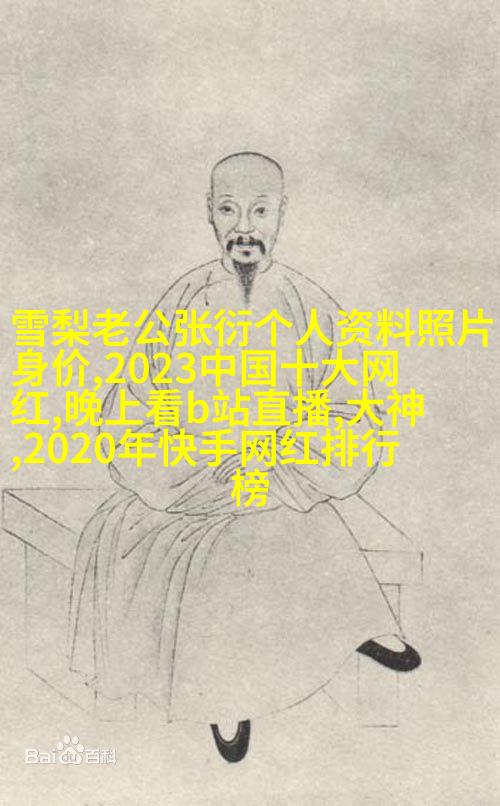 雪梨老公张衍个人资料照片
身价,2023中国十大网
红,晚上看b站直播,大神
,2020年快手网红排行
榜
Bai du 百科